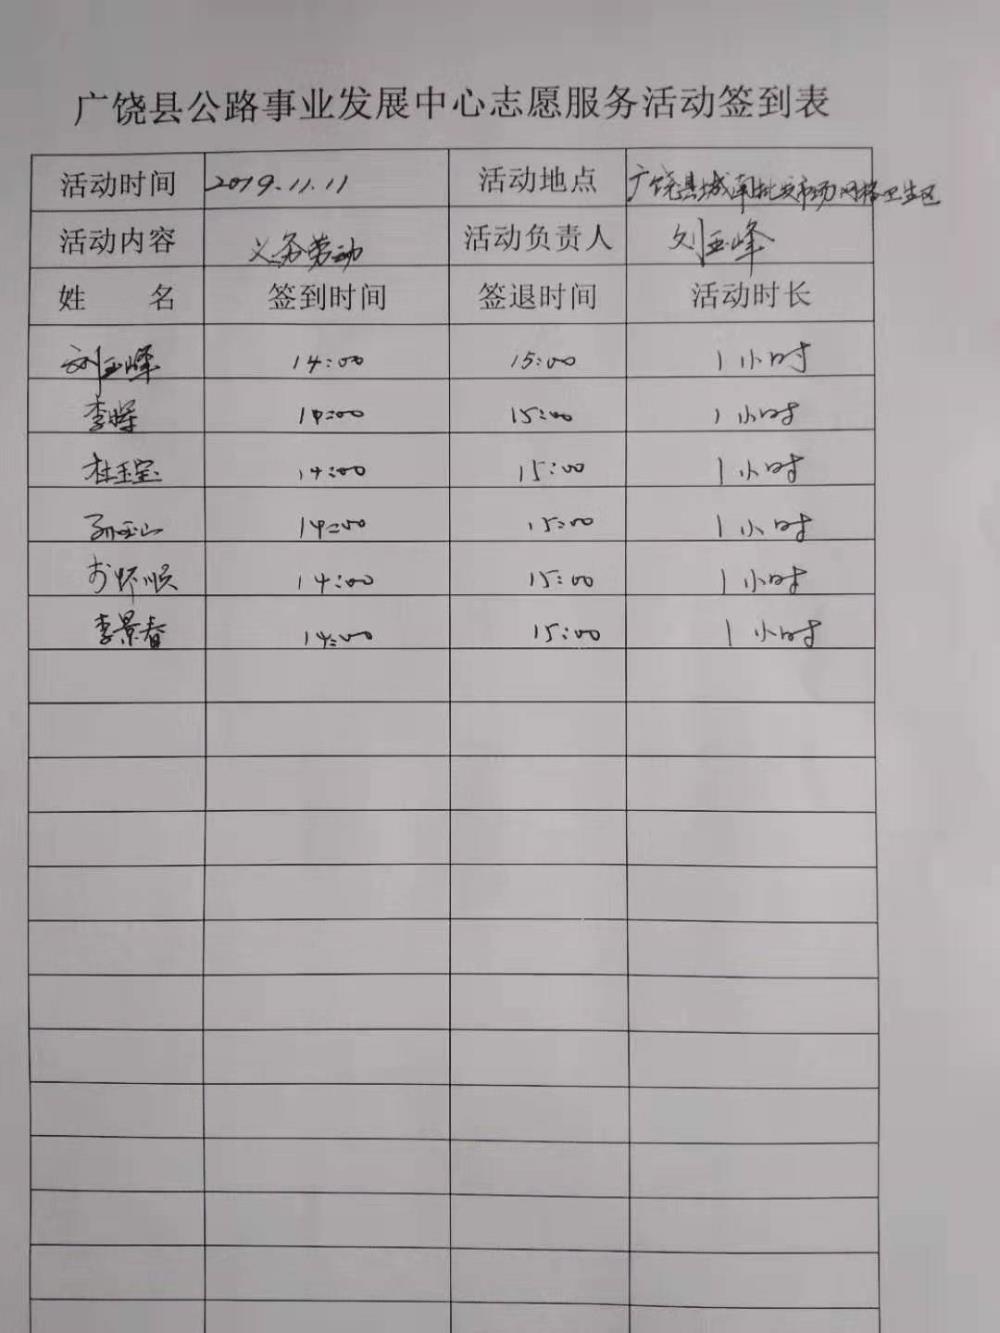 广饶县公路事业发展中心志愿服务活动签到表
活动时间 2019.11.11 活动地点 广饶县城南批发市场网格卫生区
活动内容 义务劳动 活动负责人 刘玉峰
姓 名 签到时间 签退时间 活动时长
刘玉峰 14:00 15:00 1小时
李辉 14:00 15:00 1小时
杜玉宝 14:00 15:00 1小时
孙玉山 14:00 15:00 1小时
怀顺 14:00 15:00 1小时
李景春 14:00 15:00 1小时